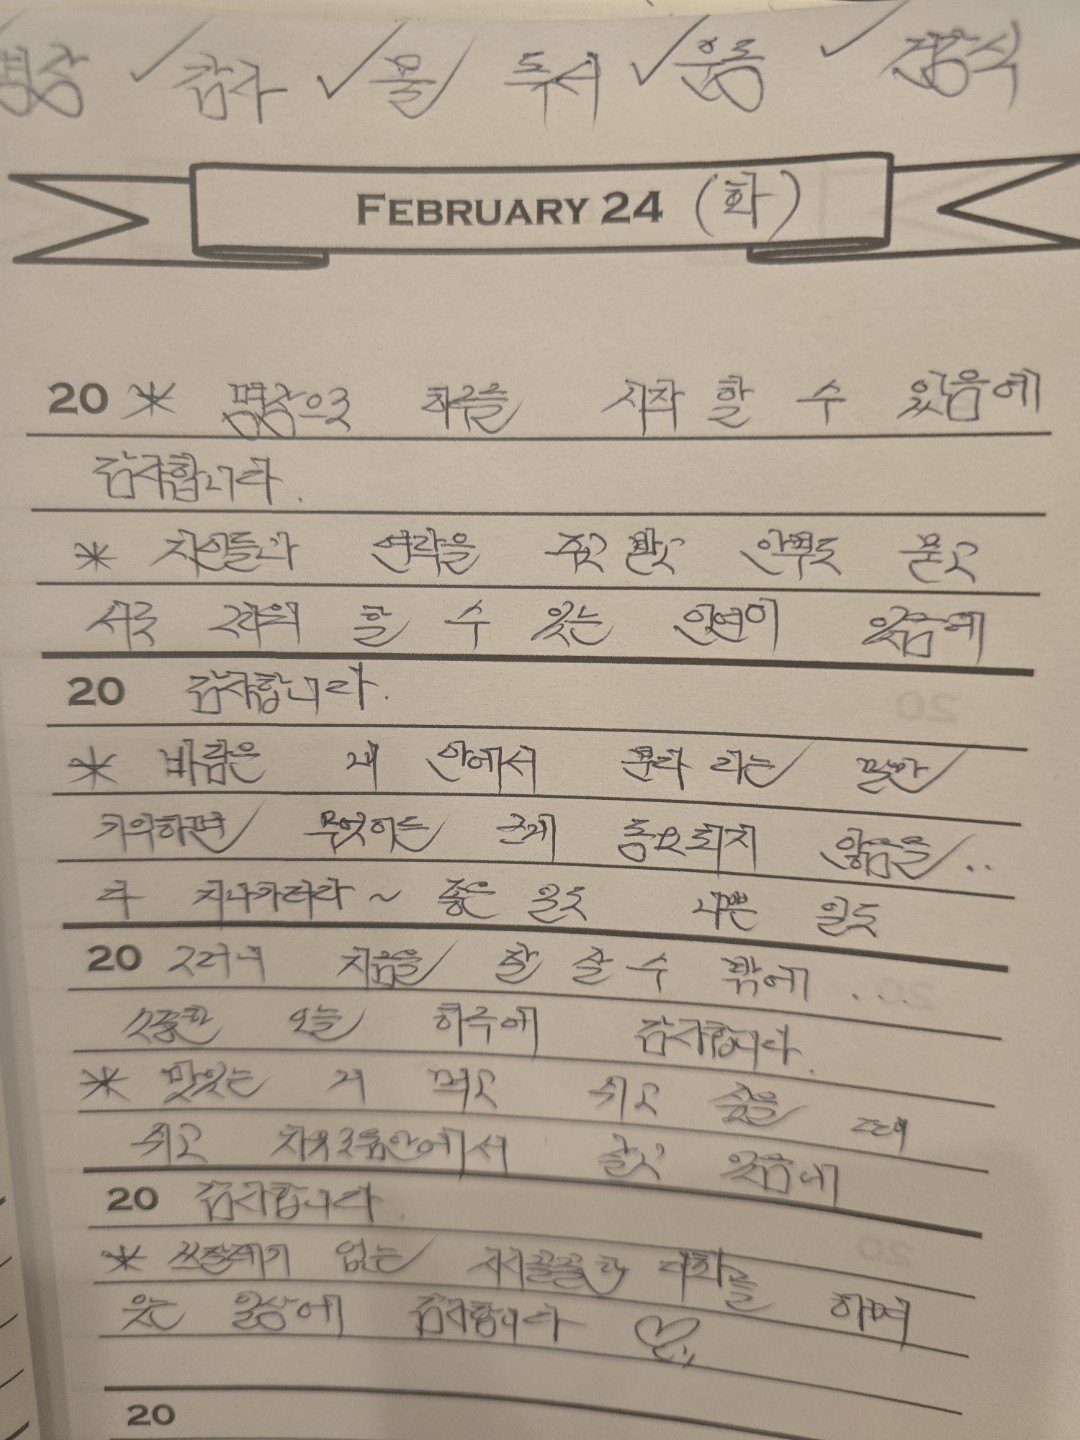 명상 ✓ 감사 ✓ 물 독서 ✓ 운동 ✓ 간장식
FEBRUARY 24 (화)
20 * 명상으로 하루를 시작 할 수 있음에
감사합니다.
* 지인들과 연락을 주고 받고 안부도 묻고
서로 격려 할 수 있는 인연이 있음에
20 감사합니다.
* 바람은 내 안에서 분다 라는 말만
기억하면 무엇이든 크게 동요되지 않음을..
다 지나가리라~ 좋은 일도 나쁜 일도
20 그러니 지금을 잘 살 수 밖에 ...
소중한 오늘 하루에 감사합니다.
* 맛있는 거 먹고 쉬고 싶을 때
쉬고 자유로움안에서 살고 있음에
20 감사합니다.
* 쓰잘데기 없는 시시콜콜한 대화를 하며
웃는 일상에 감사합니다 ♡
20